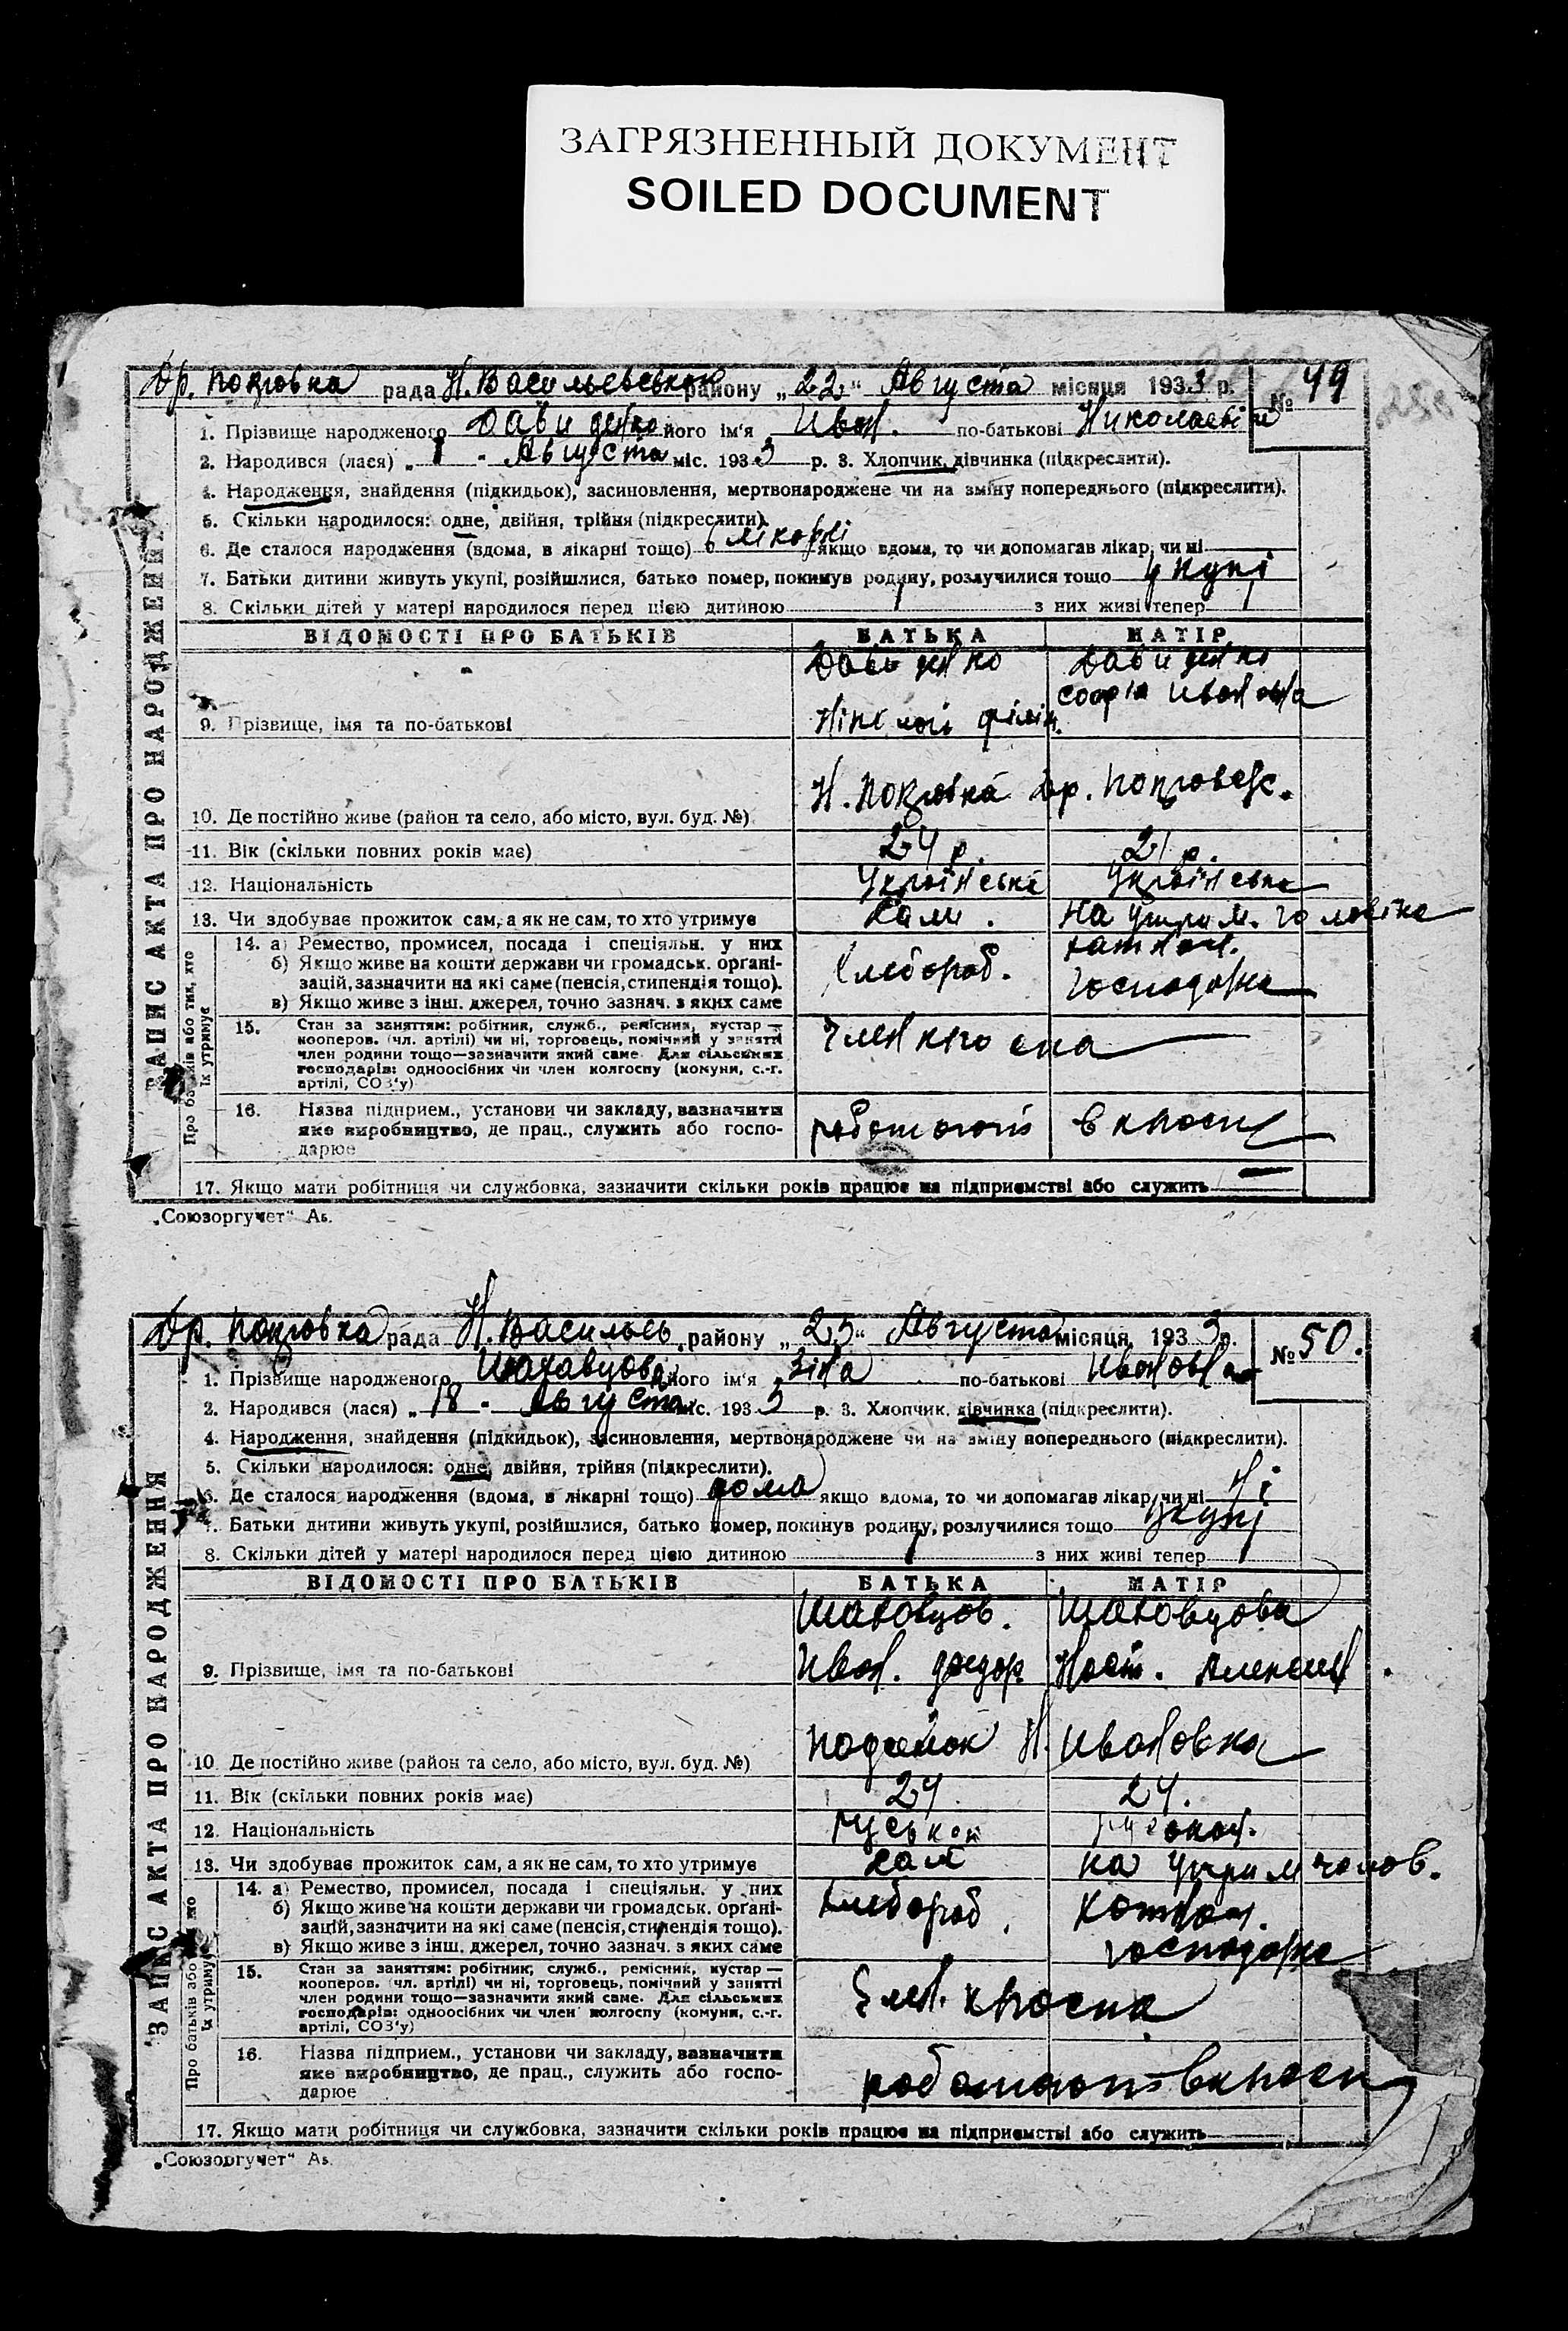 ЗАГРЯЗНЕННЫЙ ДОКУМЕНТ
SOILED DOCUMENT
ЗАПИС АКТА ПРО НАРОДЖЕННЯ
Др. Покровка рада Н. Васильевськ району „22“ Августа місяця 1933 р. № 49
1. Прізвище народженого Давиденко його ім'я Иван. по-батькові
2. Народився (лася) „1 - Августа міс. 1933 р. 3. Хлопчик, дівчинка (підкреслити).
4. Народження, знайдення (підкидьок), засиновлення, мертвонароджене чи на зміну попереднього (підкреслити).
5. Скільки народилося: одне, двійня, трійня (підкреслити).
6. Де сталося народження (вдома, в лікарні тощо) якщо вдома, то чи допомагав лікар, чи ні
7. Батьки дитини живуть укупі, розійшлися, батько помер, покинув родину, розлучилися тощо укупі
8. Скільки дітей у матері народилося перед цією дитиною 1 з них живі тепер 1
ВІДОМОСТІ ПРО БАТЬКІВ БАТЬКА МАТІР
Давиденко Давиденко
Софія Ивановна
9. Прізвище, імя та по-батькові
Н. Покровка
10. Де постійно живе (район та село, або місто, вул. буд. №)
11. Вік (скільки повних років має) 24 р. 21 р.
12. Національність
13. Чи здобуває прожиток сам, а як не сам, то хто утримує на утрим. чоловіка
Про батьків або тих, хто їх утримує
14. а) Ремество, промисел, посада і спеціяльн. у них
б) Якщо живе на кошти держави чи громадськ. органі-
зацій, зазначити на які саме (пенсія, стипендія тощо). хлебороб.
в) Якщо живе з інш. джерел, точно зазнач. з яких саме
15. Стан за заняттям: робітник, служб., ремісник, кустар —
кооперов. (чл. артілі) чи ні, торговець, помічний у занятті
член родини тощо—зазначити який саме. Для сільських
господарів: одноосібних чи член колгоспу (комуни, с.-г.
артілі, СОЗ'у)
16. Назва підприєм., установи чи закладу, зазначити
яке виробництво, де прац., служить або госпо-
дарює
17. Якщо мати робітниця чи службовка, зазначити скільки років працює на підприємстві або служить —
„Союзоргучет“
ЗАПИС АКТА ПРО НАРОДЖЕННЯ
Др. Покровка рада Н. Васильев. району „25“ Августа місяця 1933 р. № 50.
1. Прізвище народженого Шаховцова його ім'я Зіна по-батькові Ивановна
2. Народився (лася) „18 - Августа міс. 1933 р. 3. Хлопчик, дівчинка (підкреслити).
4. Народження, знайдення (підкидьок), засиновлення, мертвонароджене чи на зміну попереднього (підкреслити).
5. Скільки народилося: одне, двійня, трійня (підкреслити).
6. Де сталося народження (вдома, в лікарні тощо) дома якщо вдома, то чи допомагав лікар, чи ні Ні
7. Батьки дитини живуть укупі, розійшлися, батько помер, покинув родину, розлучилися тощо укупі
8. Скільки дітей у матері народилося перед цією дитиною 1 з них живі тепер 1
ВІДОМОСТІ ПРО БАТЬКІВ БАТЬКА МАТІР
Шаховцов. Шаховцова
9. Прізвище, імя та по-батькові Иван. Федор. Наст.
Н. Ивановка
10. Де постійно живе (район та село, або місто, вул. буд. №)
11. Вік (скільки повних років має) 24. 24.
12. Національність
13. Чи здобуває прожиток сам, а як не сам, то хто утримує сам на утрим чолов.
Про батьків або тих, хто їх утримує
14. а) Ремество, промисел, посада і спеціяльн. у них
б) Якщо живе на кошти держави чи громадськ. органі- хлебороб.
зацій, зазначити на які саме (пенсія, стипендія тощо).
в) Якщо живе з інш. джерел, точно зазнач. з яких саме
15. Стан за заняттям: робітник, служб., ремісник, кустар —
кооперов. (чл. артілі) чи ні, торговець, помічний у занятті
член родини тощо—зазначити який саме. Для сільських
господарів: одноосібних чи член колгоспу (комуни, с.-г.
артілі, СОЗ'у)
16. Назва підприєм., установи чи закладу, зазначити
яке виробництво, де прац., служить або госпо-
дарює
17. Якщо мати робітниця чи службовка, зазначити скільки років працює на підприємстві або служить
„Союзоргучет“